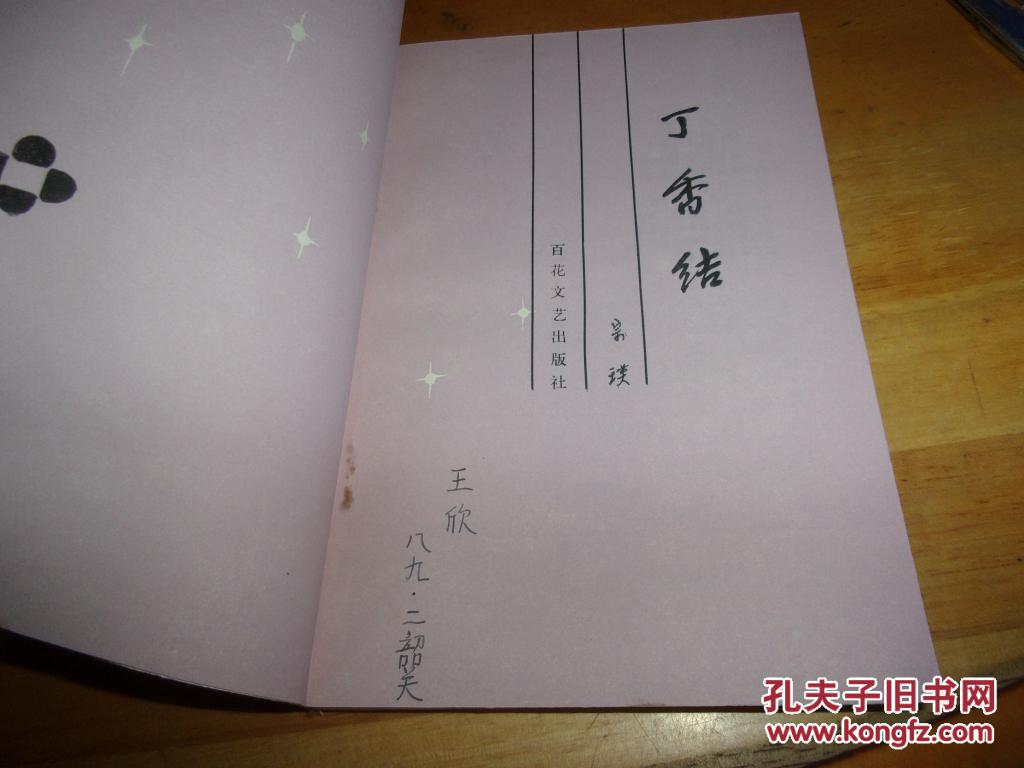 丁香结
宗璞
百花文艺出版社
王欣
八九·二韶关
孔夫子旧书网
www.kongfz.com